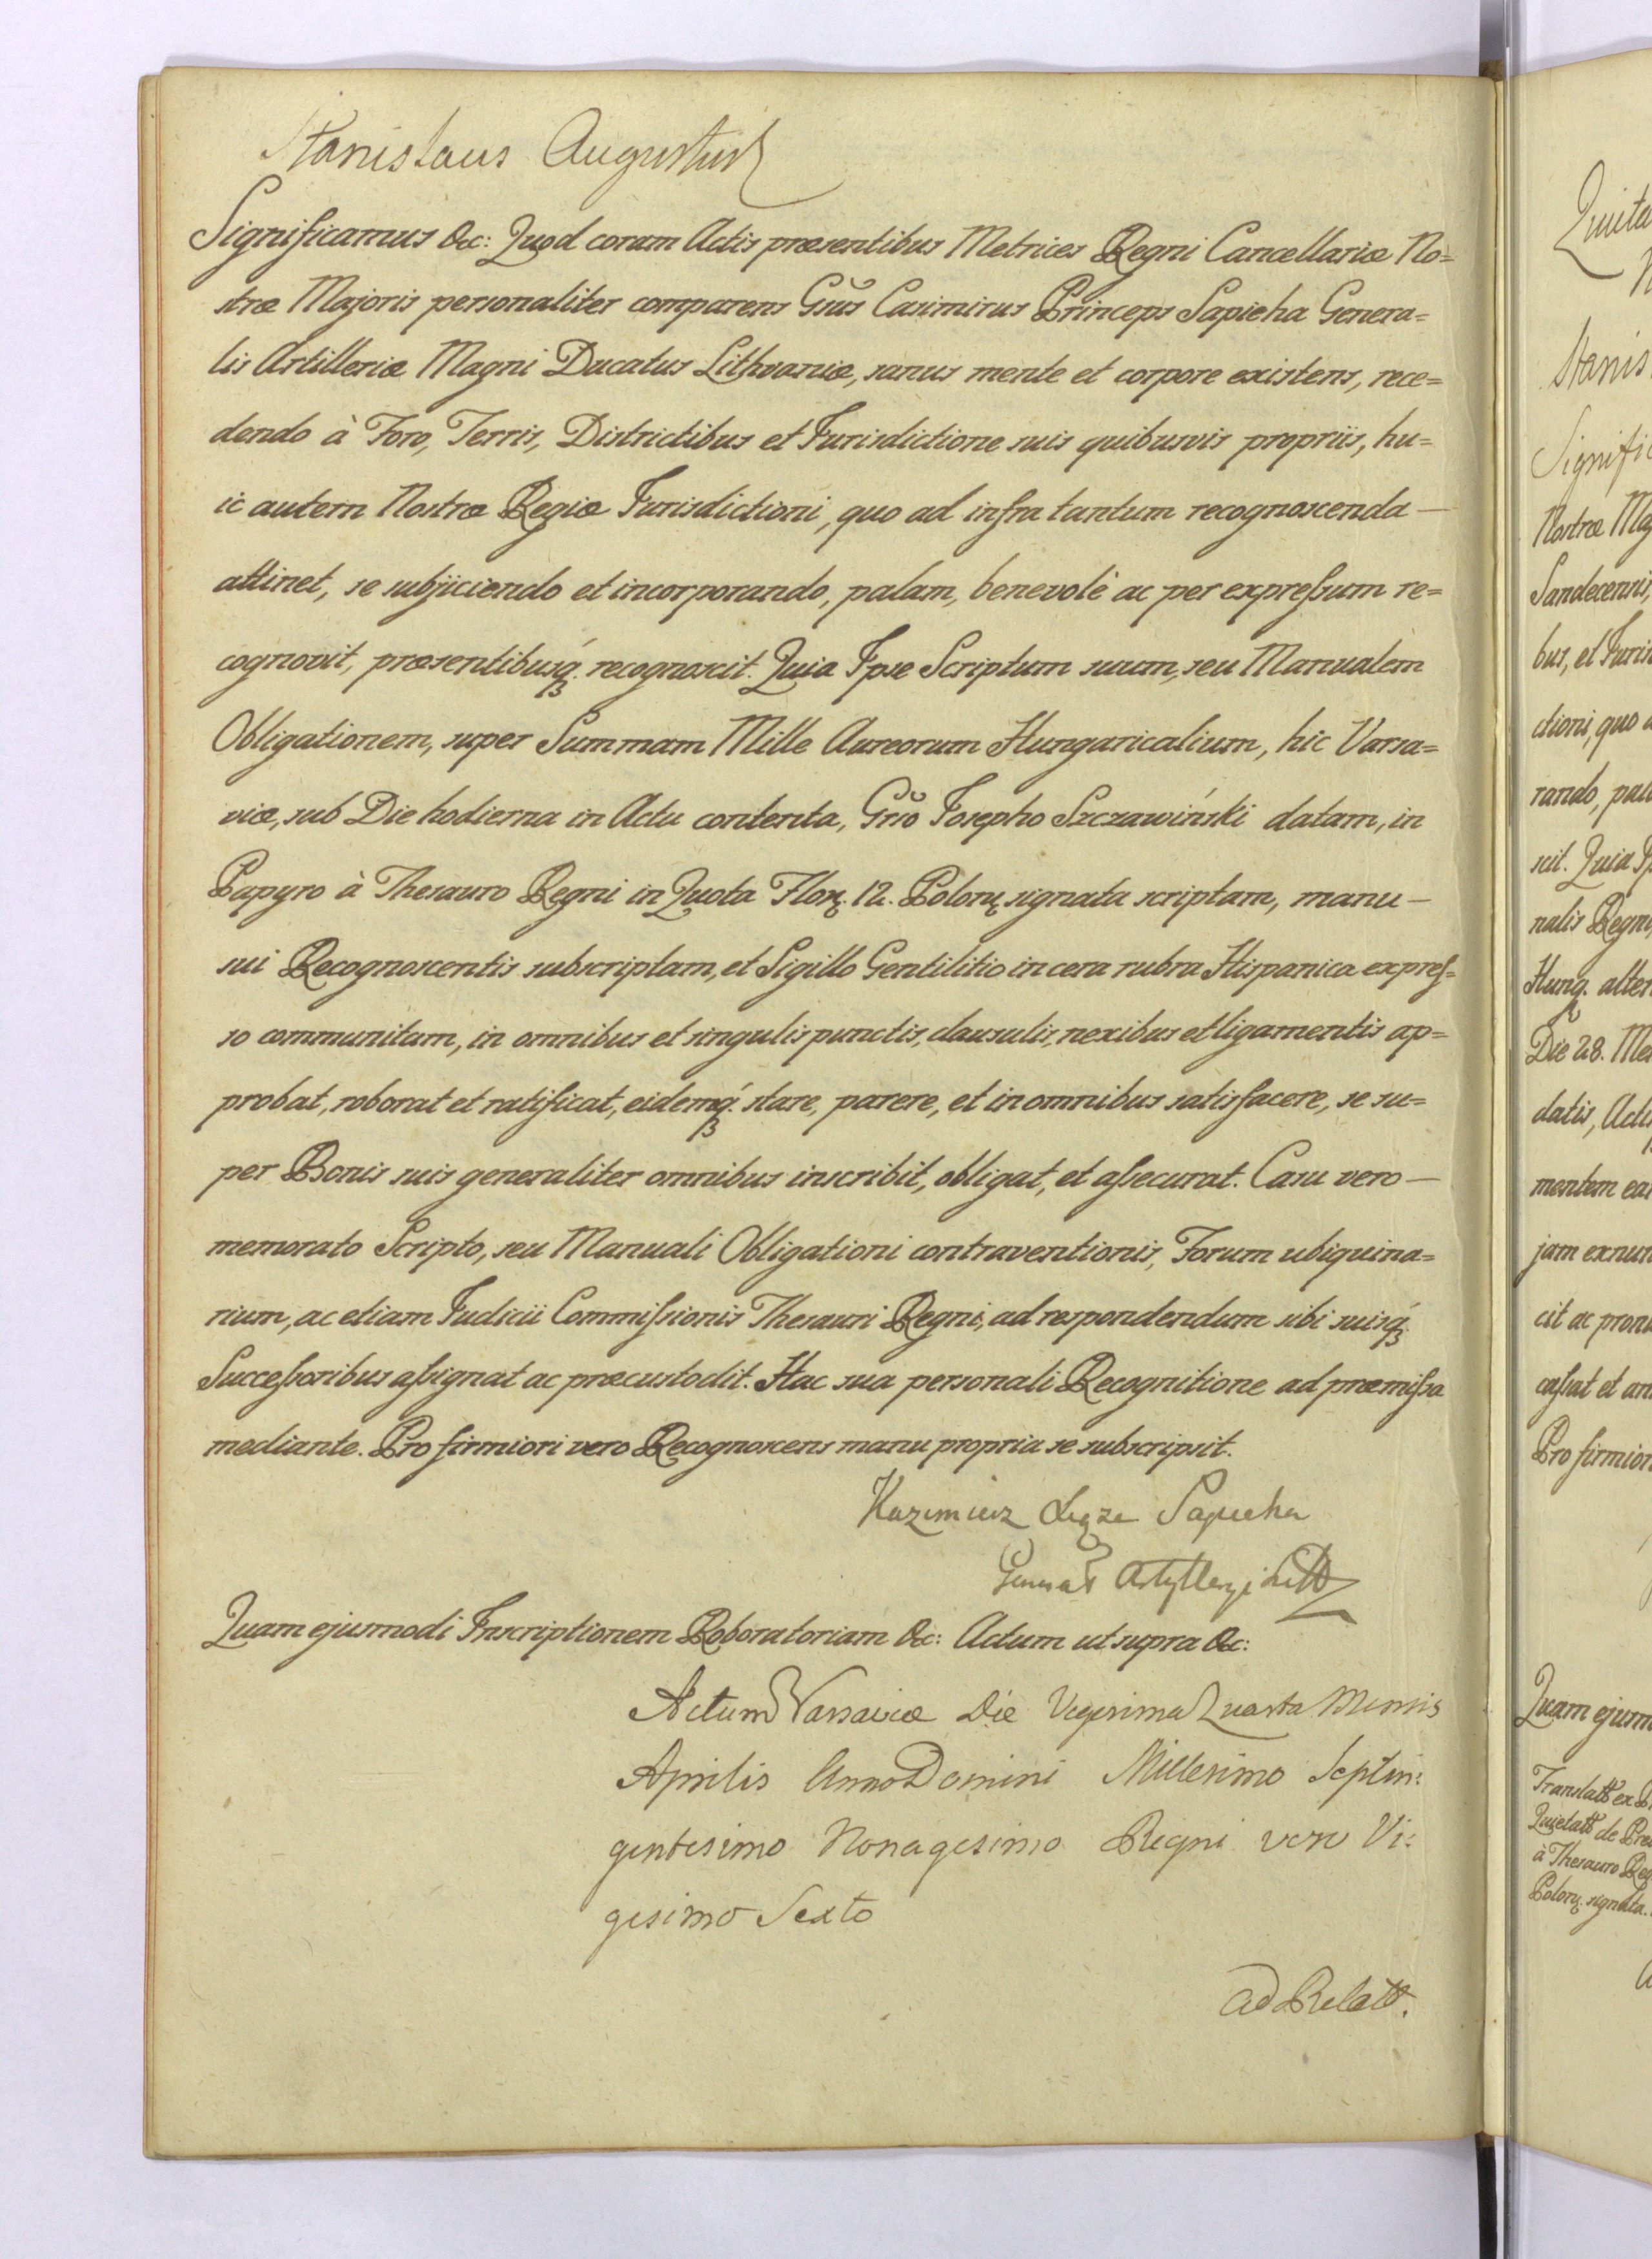 Stanislaus Augustus
Significamus &c: Quod coram Actis præsentibus Metrices Regni Cancellariæ No=
stræ Majoris personaliter comparens Gn̄us Casimirus Princeps Sapieha Genera=
lis Artilleriæ Magni Ducatus Lithvaniæ, sanus mente et corpore existens, rece=
dendo à Foro, Terris, Districtibus et Jurisdictione suis quibusvis propriis, hu=
ic autem Nostræ Regiæ Jurisdictioni, quo ad infra tantum recognoscenda —
attinet, se subjiciendo et incorporando, palam, benevolè ac per expreſsum re=
cognovit, præsentibusq́ꝫ recognoscit. Quia Ipse Scriptum suum, seu Manualem
Obligationem, super Summam Mille Aureorum Hungaricalium, hic Varsa=
viæ, sub Die hodierna in Actu contenta, Gn̄o Josepho Szczawiński datam, in
Papyro à Thesauro Regni in Quota Flor. 12. Polor. signata scriptam, manu —
sui Recognoscentis subscriptam, et Sigillo Gentilitio in cera rubra Hispanica expreſ=
so communitam, in omnibus et singulis punctis, clausulis, nexibus et ligamentis ap=
probat, roborat et ratificat, eidemq́ꝫ stare, parere, et in omnibus satisfacere, se su=
per Bonis suis generaliter omnibus inscribit, obligat, et aſsecurat. Casu vero —
memorato Scripto, seu Manuali Obligationi contraventionis, Forum ubiquina=
rium, ac etiam Judicii Commiſsionis Thesauri Regni, ad respondendum sibi suisq́ꝫ
Succeſsoribus aſsignat ac præcustodit. Hac sua personali Recognitione ad præmiſsa
mediante. Pro firmiori vero Recognoscens manu propria se subscripsit.
Kazimierz Sapieha
Generał Artylleryi Litt
Quam ejusmodi Inscriptionem Roboratoriam &c: Actum ut supra &c:
Actum Varsaviæ Die Vigesima Quarta Mensis
Aprilis Anno Domini Millesimo Septin:
gentesimo Nonagesimo Regni vero Vi:
gesimo Sexto
Ad Relatt.
Stanis
Signific
Nostræ Maj
Sandecensis,
bus, et Juris
ctioni, quo a
rando, pal
scit. Quia Ip
nalis Regni,
Hung. alter
Die 28. Me
datis, Act
mentem ea
jam exnun
cit ac pron
caſsat et an
Pro firmior
Quam ejusm
Translatt ex
Quietatt de Pre
à Thesauro Reg
Polor. signata.